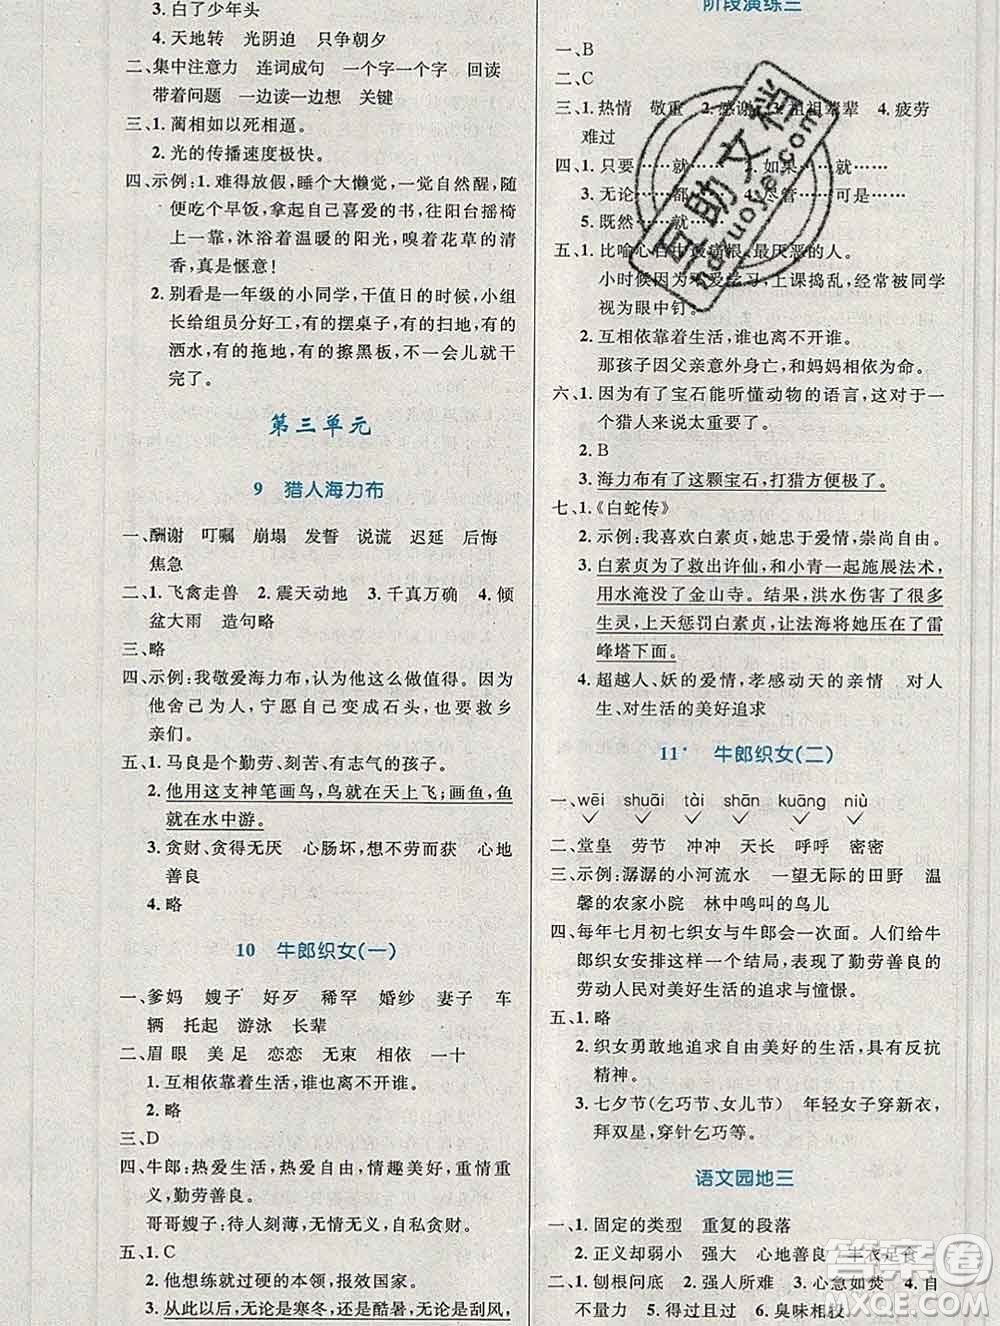 3. 白了少年头
4. 天地转 光阴迫 只争朝夕
二、集中注意力 连词成句 一个字一个字 回读
带着问题 一边读一边想 关键
三、1. 蔺相如以死相逼。
2. 光的传播速度极快。
四、示例:1. 难得放假,睡个大懒觉,一觉自然醒,随
便吃个早饭,拿起自己喜爱的书,往阳台摇椅
上一靠,沐浴着温暖的阳光,嗅着花草的清
香,真是惬意!
2. 别看是一年级的小同学,干值日的时候,小组
长给组员分好工,有的摆桌子,有的扫地,有的
洒水,有的拖地,有的擦黑板,不一会儿就干
完了。
第三单元
9 猎人海力布
一、酬谢 叮嘱 崩塌 发誓 说谎 迟延 后悔
焦急
二、1. 飞禽走兽 2. 震天动地 3. 千真万确 4. 倾
盆大雨 造句略
三、略
四、示例:我敬爱海力布,认为他这么做值得。因为
他舍己为人,宁愿自己变成石头,也要救乡
亲们。
五、1. 马良是个勤劳、刻苦、有志气的孩子。
2. 他用这支神笔画鸟,鸟就在天上飞;画鱼,鱼
就在水中游。
3. 贪财、贪得无厌 心肠坏,想不劳而获 心地
善良
4. 略
10 牛郎织女(一)
一、爹妈 嫂子 好歹 稀罕 婚纱 妻子 车
辆 托起 游泳 长辈
二、眉 眼 美 足 恋恋 无束 相依 一十
1. 互相依靠着生活,谁也离不开谁。
2. 略
三、D
四、牛郎:热爱生活,热爱自由,情趣美好,重情重
义,勤劳善良。
哥哥嫂子:待人刻薄,无情无义,自私贪财。
五、1. C
2. 他想练就过硬的本领,报效国家。
3. 从此以后,无论是寒冬,还是酷暑,无论是刮风,
阶段演练三
一、B
二、C
三、1. 热情 敬重 2. 感谢 3. 祖祖辈辈 4. 疲劳
难过
四、1. 只要……就…… 2. 如果……就……
3. 无论……都…… 4. 尽管……可是……
5. 既然……就……
五、1. 比喻心目中最痛恨、最厌恶的人。
小时候因为不爱学习,上课捣乱,经常被同学
视为眼中钉。
2. 互相依靠着生活,谁也离不开谁。
那孩子因父亲意外身亡,和妈妈相依为命。
六、1. 因为有了宝石能听懂动物的语言,这对于一
个猎人来说太重要了。
2. B
3. 海力布有了这颗宝石,打猎方便极了。
七、1.《白蛇传》
2. 示例:我喜欢白素贞,她忠于爱情,崇尚自由。
3. 白素贞为了救出许仙,和小青一起施展法术,
用水淹没了金山寺。结果,洪水伤害了很多
生灵,上天惩罚白素贞,让法海将她压在了雷
峰塔下面。
4. 超越人、妖的爱情,孝感动天的亲情 对人
生、对生活的美好追求
11 牛郎织女(二)
一、wēi shuāi tài shān kuāng niù
二、堂皇 劳节 冲冲 天长 呼呼 密密
三、示例:潺潺的小河流水 一望无际的田野 温
馨的农家小院 林中鸣叫的鸟儿
四、每年七月初七织女与牛郎会一次面。人们给牛
郎织女安排这样一个结局,表现了勤劳善良的
劳动人民对美好生活的追求与憧憬。
五、1. 略
2. 织女勇敢地追求自由美好的生活,具有反抗
精神。
3. 七夕节(乞巧节、女儿节) 年轻女子穿新衣、
拜双星,穿针乞巧等。
语文园地三
一、1. 固定的类型 重复的段落
2. 正义却弱小 强大 心地善良 丰衣足食
二、1. 刨根问底 2. 强人所难 3. 心急如焚 4. 自
不量力 5. 得过且过 6. 臭味相投
互助文档
huzuoye.com
答案圈
MXQE.COM